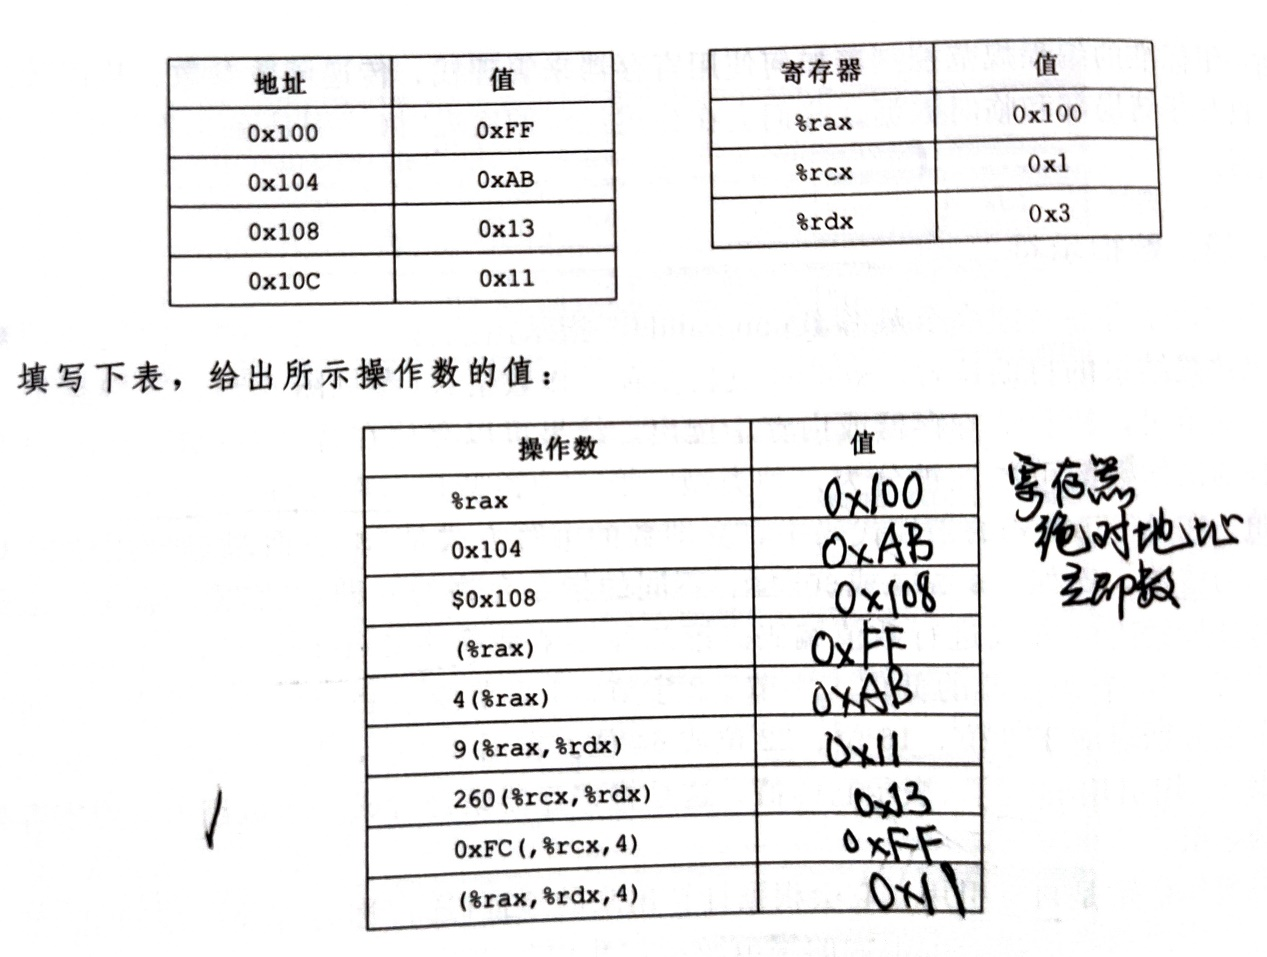 地址 值
0x100 0xFF
0x104 0xAB
0x108 0x13
0x10C 0x11
寄存器 值
%rax 0x100
%rcx 0x1
%rdx 0x3
填写下表，给出所示操作数的值：
操作数 值
%rax 0x100 寄存器
0x104 0xAB 绝对地址
$0x108 0x108 立即数
(%rax) 0xFF
4(%rax) 0xAB
9(%rax,%rdx) 0x11
260(%rcx,%rdx) 0x13
0xFC(,%rcx,4) 0xFF
(%rax,%rdx,4) 0x11